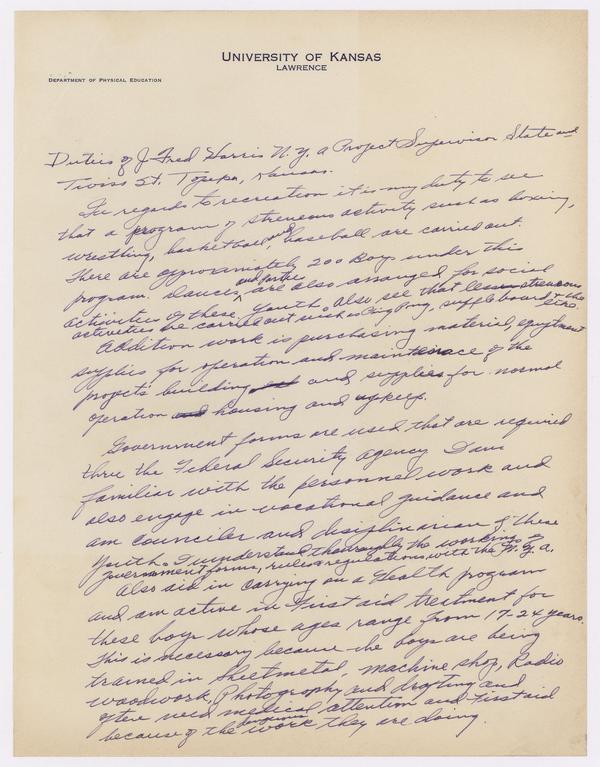 UNIVERSITY OF KANSAS
LAWRENCE
DEPARTMENT OF PHYSICAL EDUCATION
Duties of J. Fred Harris N.Y. a Project Supervisor State and
Twiss St. Topeka, Kansas.
In regards to recreation it is my duty to see
that a program of streneous activity such as boxing,
wrestling, basketball, and baseball are carried out.
There are approximately 200 boys under this
program. Dances and parties are also arranged for social
activities of these youth. Also see that less streneous
activities be carried out such as Ping Pong, shuffle board, & the
like.
Addition work is purchasing material, equiptment
supplies for operation and maintenace of the
projects building and supplies for normal
operation housing and upkeep.
Government forms are used that are required
thru the Federal Security agency I am
familiar with the personnel work and
also engage in vocational guidance and
am counciler and disiplinarian of these
youth. I understand thoroughly the workings of
government forms, rules & regulations, with the N.Y.A.
Also aid in carrying on a Health program
and am active in First aid treatment for
these boys whose ages range from 17-24 years.
This is necessary because the boys are being
trained in Sheetmetal, machine shop, Radio
woodwork, Photography and drafting and
often need medical attention and First aid
because of the dangerous work they are doing.